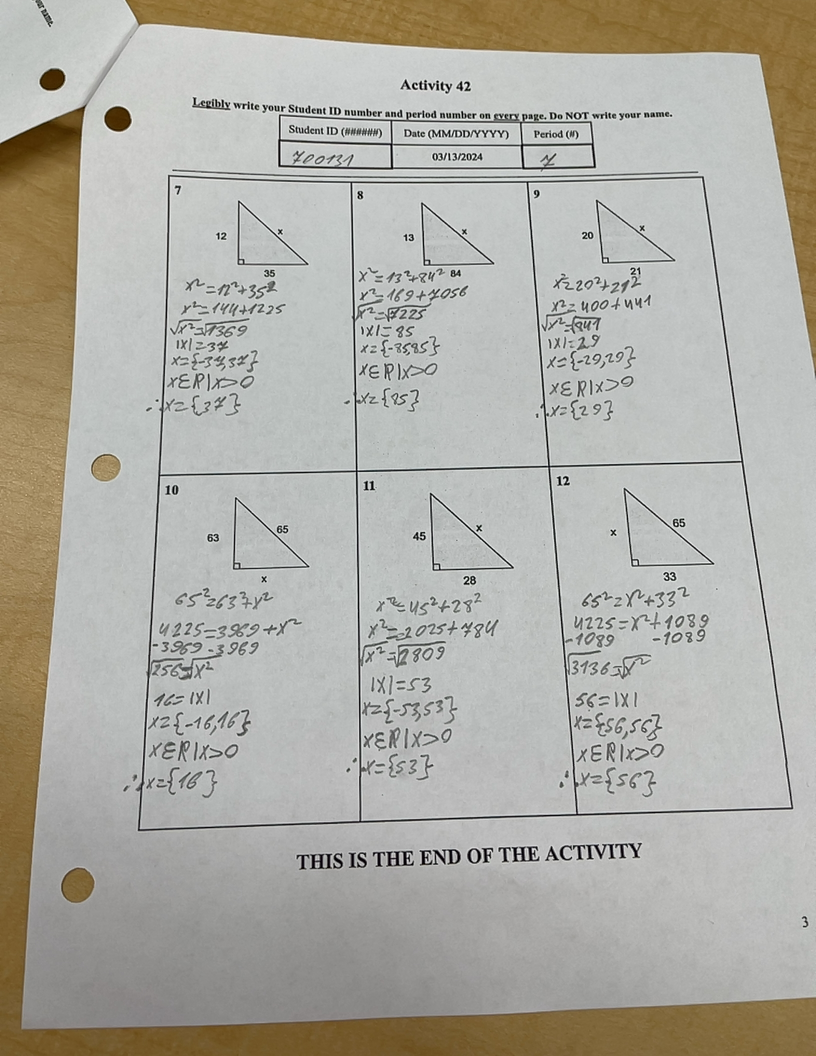 Activity 42
Legibly write your Student ID number and period number on every page. Do NOT write your name.
Student ID (######) Date (MM/DD/YYYY) Period (#)
700131 03/13/2024 7
7
12
x
35
x²=12²+35²
x²=144+1225
√x²=√1369
|x|=37
x={-37,37}
xƐR|x>0
∴x={37}
8
13
x
84
x²=13²+84²
x²=169+7056
√x²=√7225
|x|=85
x={-85,85}
xƐR|x>0
∴x={85}
9
20
x
21
x²=20²+21²
x²=400+441
√x²=√841
|x|=29
x={-29,29}
xƐR|x>0
∴x={29}
10
63
65
x
65²=63²+x²
4225=3969+x²
-3969 -3969
√256=√x²
16=|x|
x={-16,16}
xƐR|x>0
∴x={16}
11
45
x
28
x²=45²+28²
x²=2025+784
√x²=√2809
|x|=53
x={-53,53}
xƐR|x>0
∴x={53}
12
x
65
33
65²=x²+33²
4225=x²+1089
-1089 -1089
√3136=√x²
56=|x|
x={56,56}
xƐR|x>0
∴x={56}
THIS IS THE END OF THE ACTIVITY
3